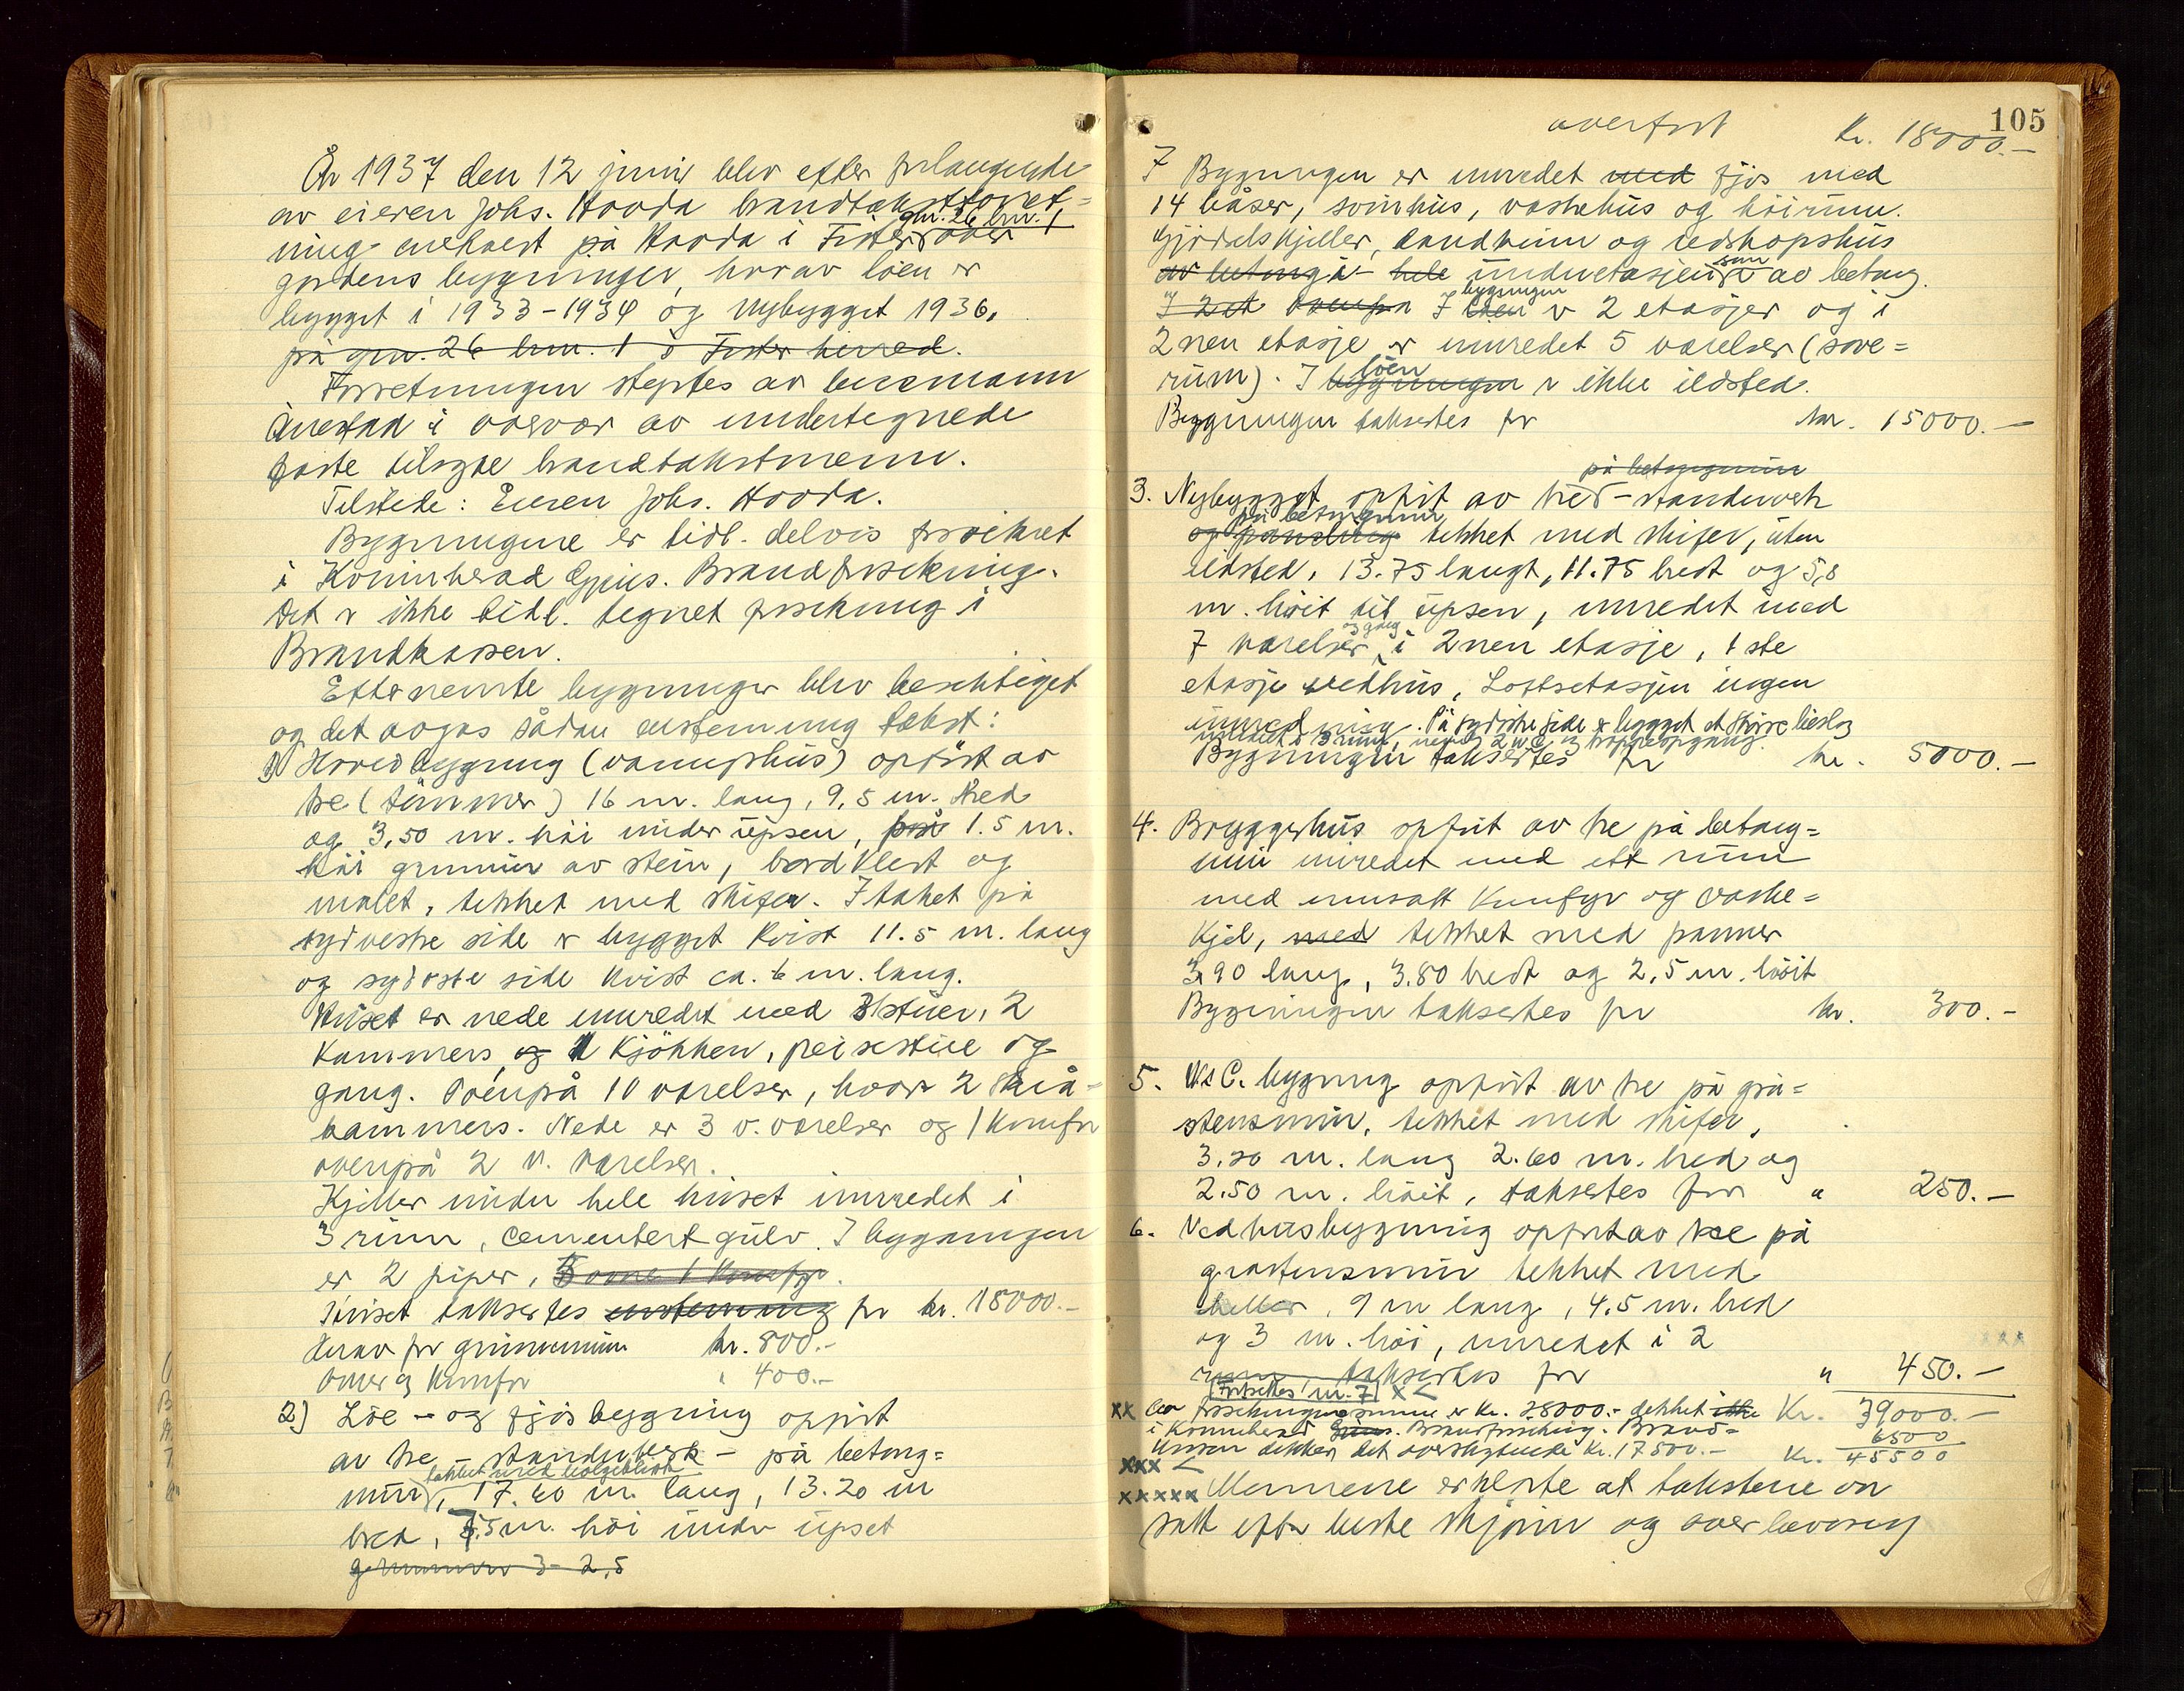 År 1937 den 12 juni blev efter forlangende
av eieren Johs. Hovda brandtakstforret-
ning avholdt på Hovda i Fister gnr. 26 bnr. 1 over
gardens bygninger, hvorav löen er
bygget i 1933-1934 og Nybygget 1936.
på gnr. 26 bnr. 1 i Fister herred.
Forretningen styrtes av lensmann
i overvær av undertegnede
faste tilsyne brandtakstmenn.
Tilstede: Eieren Johs. Hovda.
Bygningene er tidl. delvis forsikret
i Brandforsikring.
Det er ikke tidl. tegnet forsikring i
Brandkassen.
Efternevnte bygninger blev besiktiget
og det avgas sådan enstemmig takst:
1) Hovedbygning (vaaningshus) opfört av
tre (tömmer) 16 m. lang, 9,5 m. bred
og 3,50 m. höi under upsen, på 1.5 m.
höi grunmur av stein, bordkledt og
malet, tekket med skifer. I taket på
sydvestre side er bygget kvist 11.5 m. lang
og sydöstre side kvist ca. 6 m. lang.
Huset er nede innredet med 3 stuer, 2
kammers, og 1 kjökken, peisestue og
gang. Ovenpå 10 værelser, hvorav 2 skrå-
kammers. Nede er 3 v. værelser og 1 komfyr
ovenpå 2 v. værelser.
Kjeller under hele huset innredet i
3 rum, cementert gulv. I bygningen
er 2 piper, 3 ovne 1 komfyr.
Huset takseres enstemmig for kr. 18000.-
derav for grunnmuren kr. 800.-
Ovner og komfyr " 400.-
2) Löe - og fjösbygning opfört
av tre - standerverk - på betong-
tekket med bölgeblikk
mur, 17.60 m. lang, 13.20 m
bred, 5.5 m. höi under upset
grunnmur 3 - 2,5
105
overfört Kr. 18000.-
7 Bygningen er innredet med fjös med
14 båser, svinhus, vaskehus og höirum.
Gjödselskjeller, landkum og redskapshus
av betong i hele underetasjen som er av betong.
bygningen
I 2 et ovenpå I löen er 2 etasjer og i
2nen etasje er innredet 5 værelser (sove-
löen
rum). I bygningen er ikke ildsted.
Bygningen takseres for kr. 15000.-
på betongmur
3. Nybygget opfört av tre - standerverk
på betongmur
og tekket med skifer, uten
ildsted, 13.75 langt, 11.75 bredt og 5,8
m. höit til upsen, innredet med
og gang
7 værelser i 2nen etasje, 1ste
etasje vedhus, Loftsetasjen ingen
innredning. På nordöstre side er bygget et större bislag
innredet i 3 rum, nemlig 2 W.C. og trappeopgang.
Bygningen takseres for kr. 5000.-
4. Bryggerhus opfört av tre på betong-
mur innredet med ett rum
med innsatt komfyr og vaske-
kjel, med tekket med panner
3,90 lang, 3.80 bredt og 2,5 m. höit
Bygningen takseres for kr. 300.-
5. W.C. bygning opfört av tre på grå-
stensmur, tekket med skifer,
3.20 m. lang 2.60 m. bred og
2.50 m. höit, takseres for " 250.-
6. Vedhusbygning opfört av tre på
gråstensmur tekket med
heller, 9 m lang, 4.5 m. bred
og 3 m. höi, innredet i 2 xxx
rum, takseres for " 450.-
(Fortsettes nr. 7) x<
xx Den forsikringssumme er kr. 28000.- dekket ikke Kr. 39000.-
i Brandforsikring. Brand- 6500
kassen dekker det overskytende kr. 17500.- Kr. 45500
xxx <
xxxxx Mennene erklærte at takstene er
satt efter beste skjönn og overbevisning